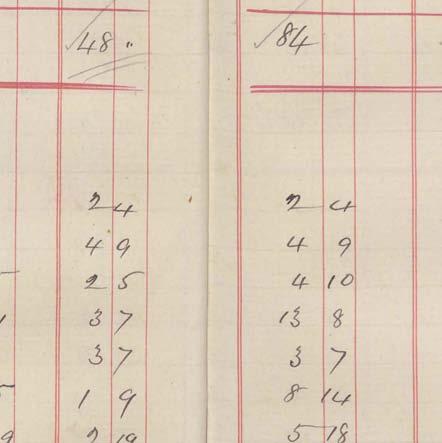 48 "
84
2 4
4 9
2 5
3 7
3 7
1 9
2 19
2 4
4 9
4 10
13 8
3 7
8 14
5 18